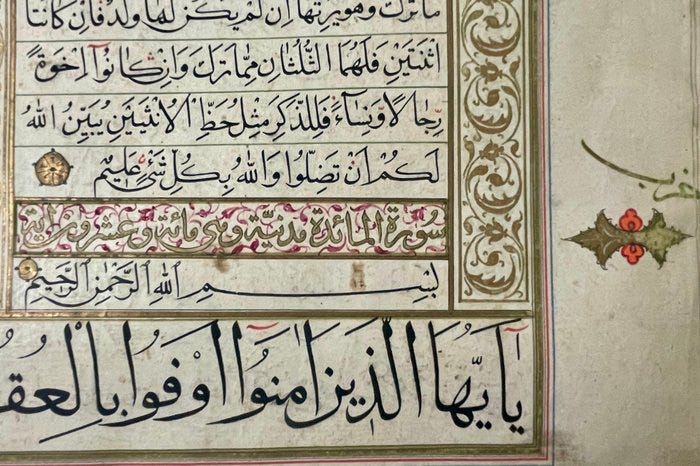 ماترك وهو يرثها ان لم يكن لها ولد فان كانتا
اثنتين فلهما الثلثان مما ترك وان كانوا اخوة
رجالا ونساء فللذكر مثل حظ الانثيين يبين الله
لكم ان تضلوا والله بكل شئ عليم
سورة المائدة مدنية وهى مائة وعشرون اية
بسم الله الرحمن الرحيم
يا ايها الذين امنوا اوفوا بالعقو
حزب